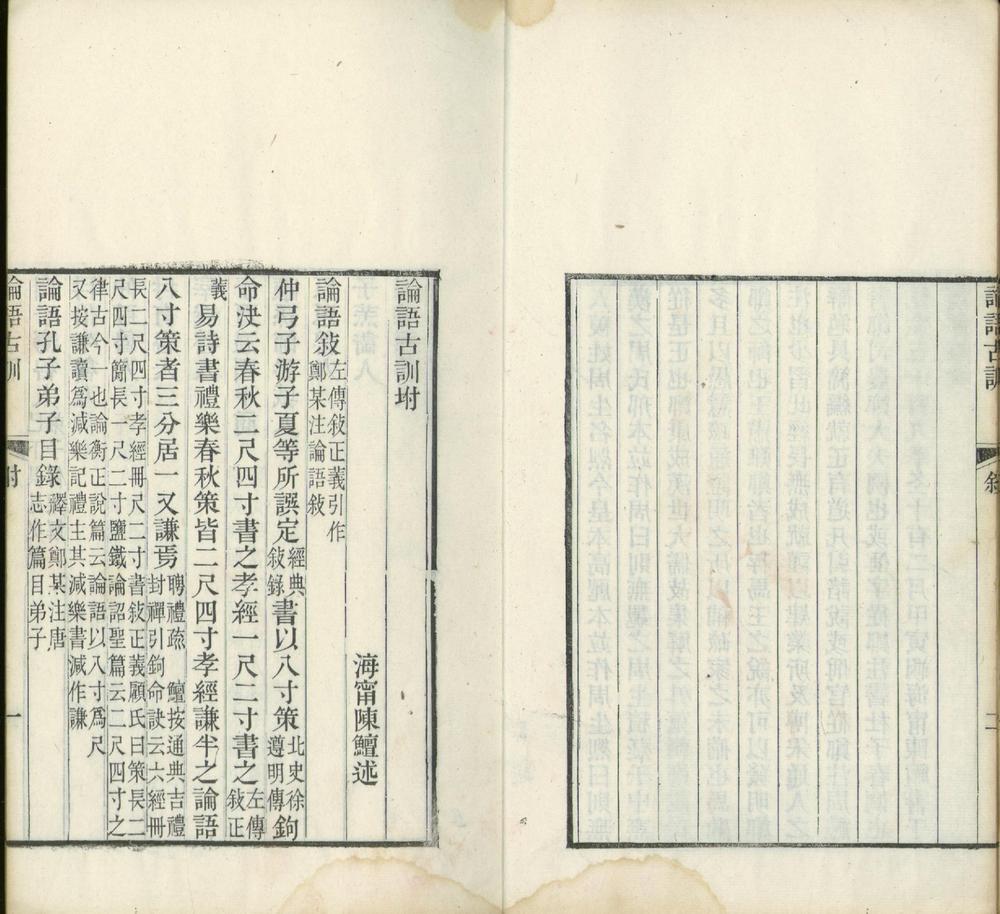 論語古訓
敘
二
論語古訓坿
海甯陳鱣述
論語敘左傳敘正義引作鄭某注論語敘
仲弓子游子夏等所譔定經典敘錄書以八寸策北史徐遵明傳鉤
命決云春秋二尺四寸書之孝經一尺二寸書之左傳敘正
義易詩書禮樂春秋策皆二尺四寸孝經謙半之論語
八寸策者三分居一又謙焉聘禮疏 鱣按通典吉禮封禪引鉤命訣云六經冊
長二尺四寸孝經冊尺二寸書敘正義顧氏曰策長二尺四寸簡長一尺二寸鹽鐵論詔聖篇云二尺四寸之
律古今一也論衡正說篇云論語以八寸爲尺又按謙讀爲減樂記禮主其減樂書減作謙
論語孔子弟子目錄釋文鄭某注唐志作篇目弟子
論語古訓
附
一